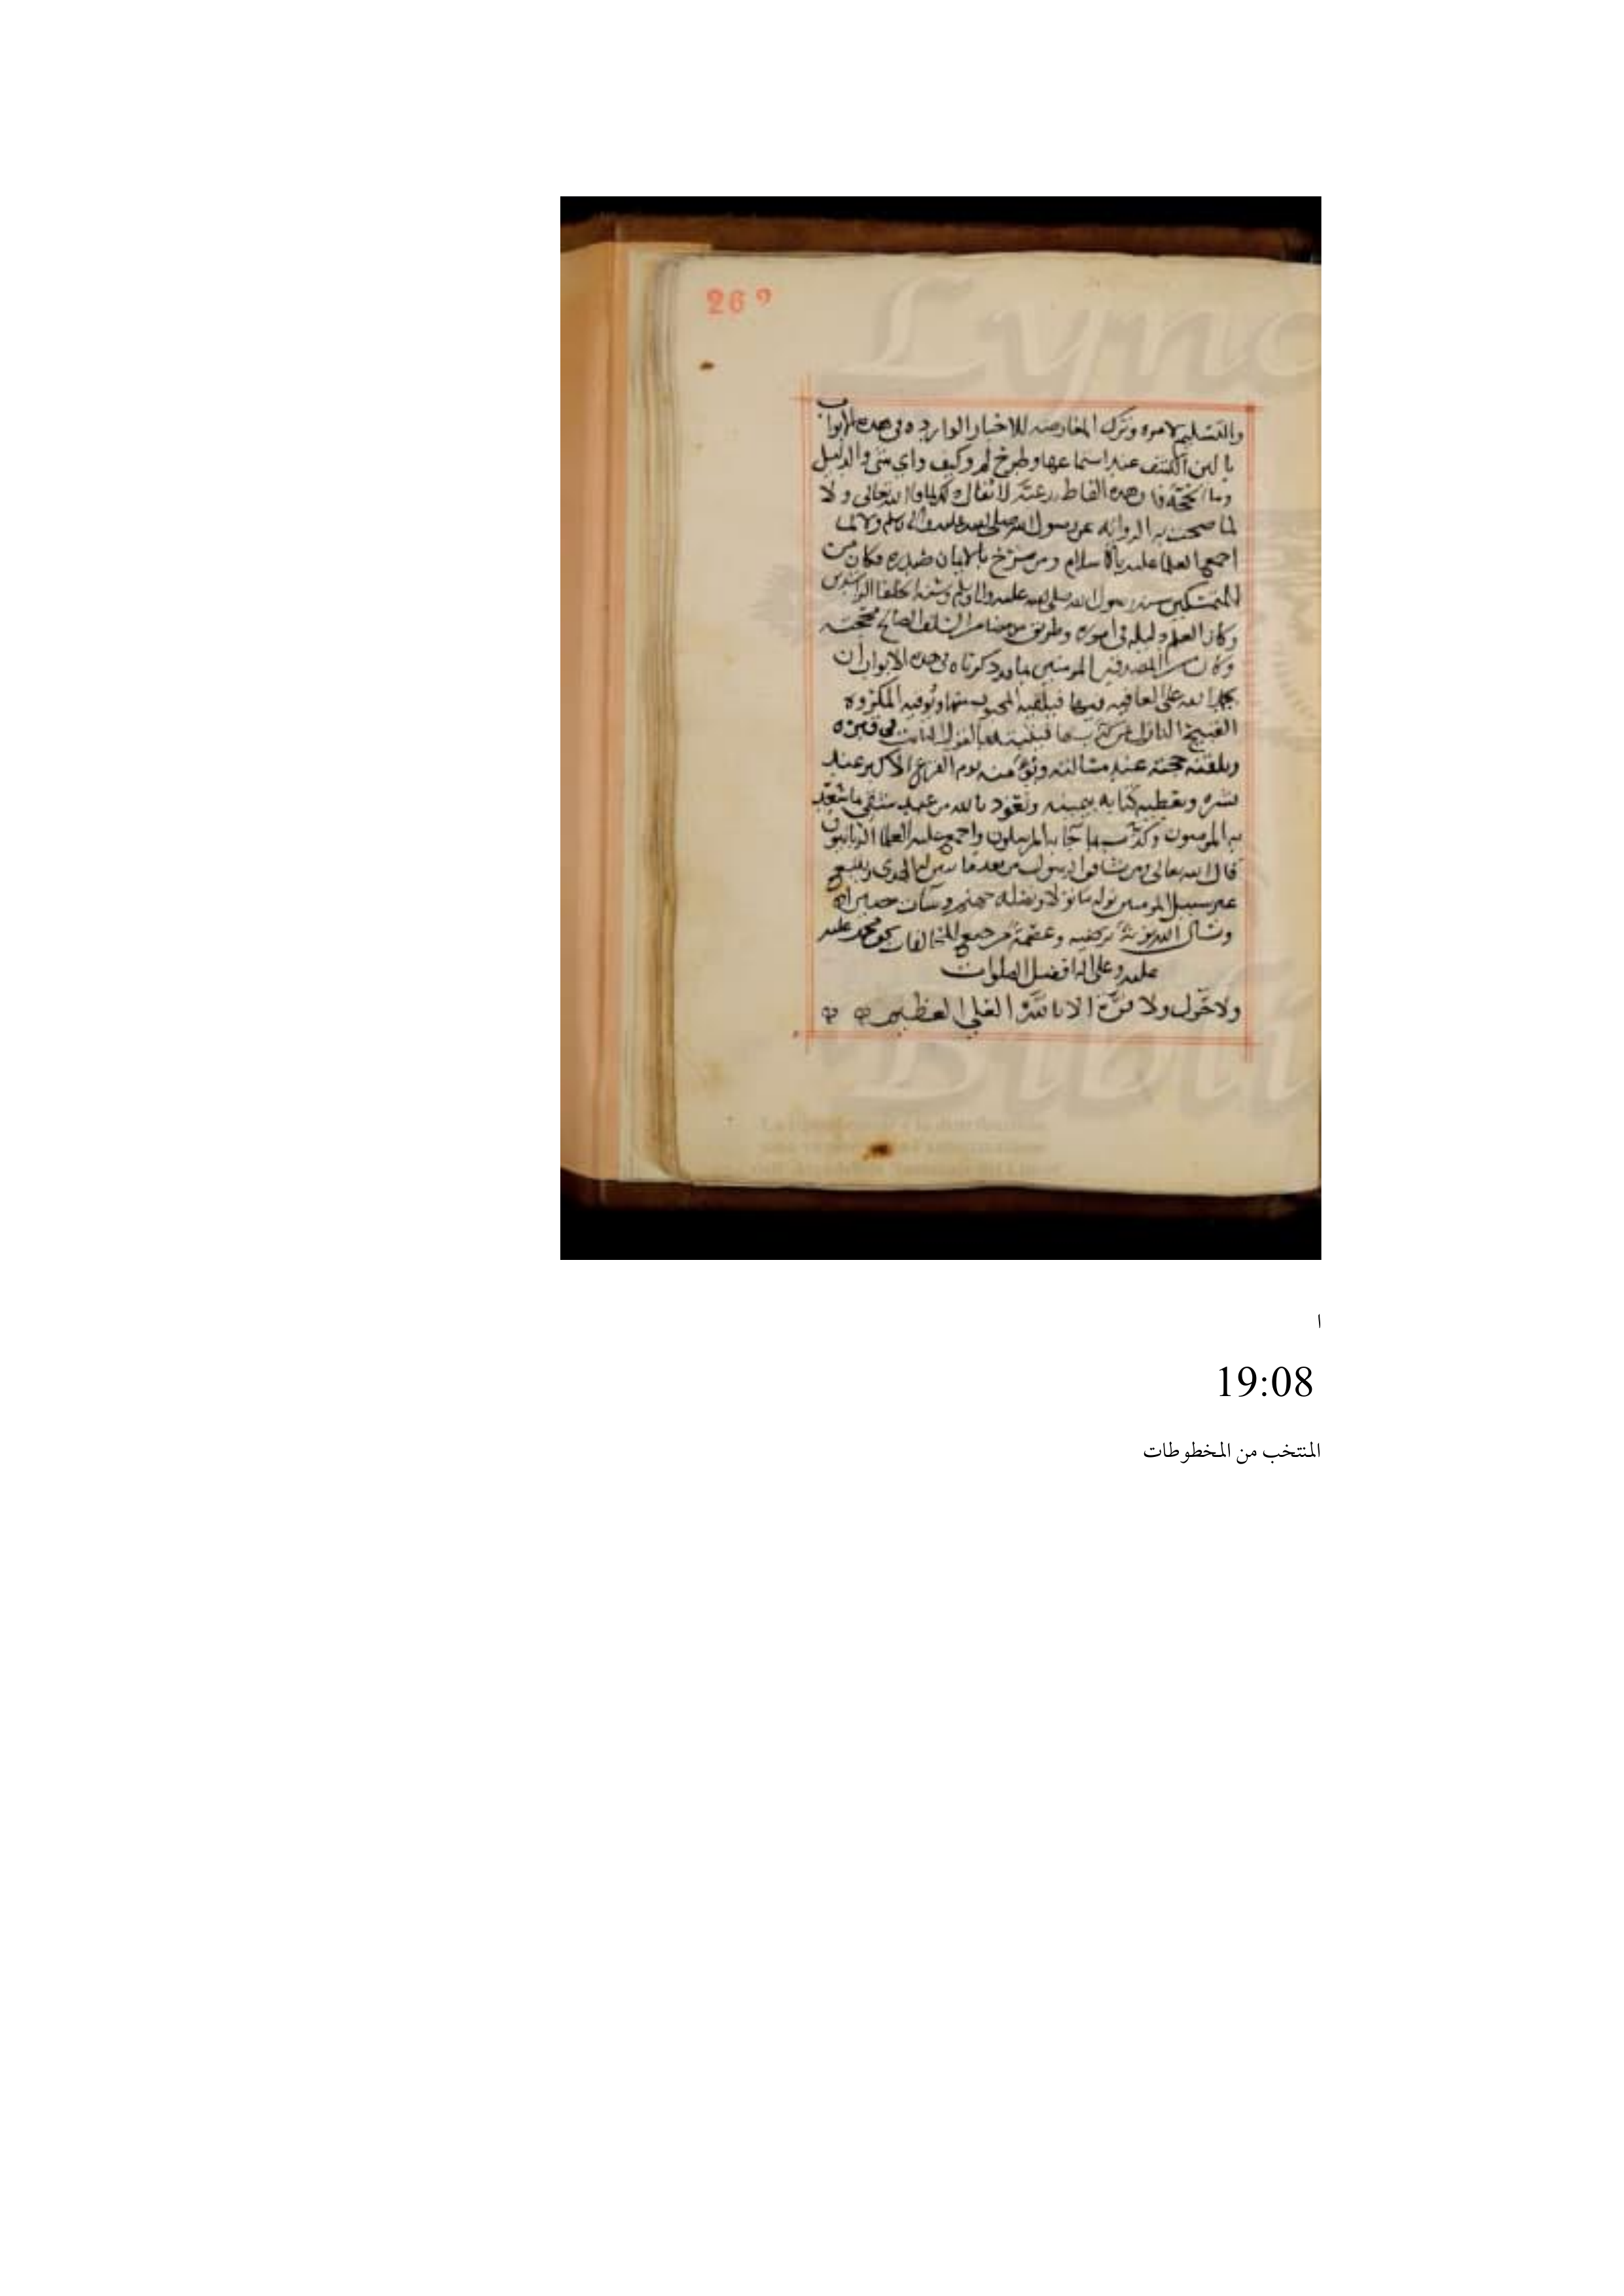 269
والتسليم لامره وترك المعارضه للاخبار الوارده فى هذه الابواب
بالين الكنف عند استماعها وطرح لم وكيف واي شى والدليل
وما الحجة فان هذه الفاظ لا تقال لله تعالى ولا
لما صحت به الروايه عن رسول الله صلى الله عليه واله وسلم ولا لما
اجمع العلما عليه بالاسلام ومن شرح بالايمان صدره فكان من
المتمسكين بسنه رسول الله صلى الله عليه واله وسلم وسنه الخلفا الراشدين
وكان العلم دليله فى اموره وطريق من مضا من السلف الصالح محجته
وكان من المصدقين المومنين بما قد ذكرناه فى هذه الابواب ان
الله على العافيه فيها فيلقيه المحبوب منها ويوقيه المكروه
القبيح النازل بمن كذب بها فيثبته بالقول الثابت فى قبره
ويلقنه حجته عند مسالته ويؤمنه يوم الفزع الاكبر عند
نشره ويعطيه كتابه بيمينه ونعوذ بالله من عبد شقى
به المومنون وكذب بما جا به المرسلون واجمع عليه العلما الربانيون
قال الله تعالى ومن يشاقق الرسول من بعد ما تبين له الهدى ويتبع
غير سبيل المومنين نوله ما تولا ونصله جهنم وسآت مصيرا
ونسال الله توبة وعصمة من جميع المخالفات بحق محمد عليه
عليه وعلى اله افضل الصلوات
ولا حول ولا قوة الا بالله العلي العظيم
ا
19:08
المنتخب من المخطوطات